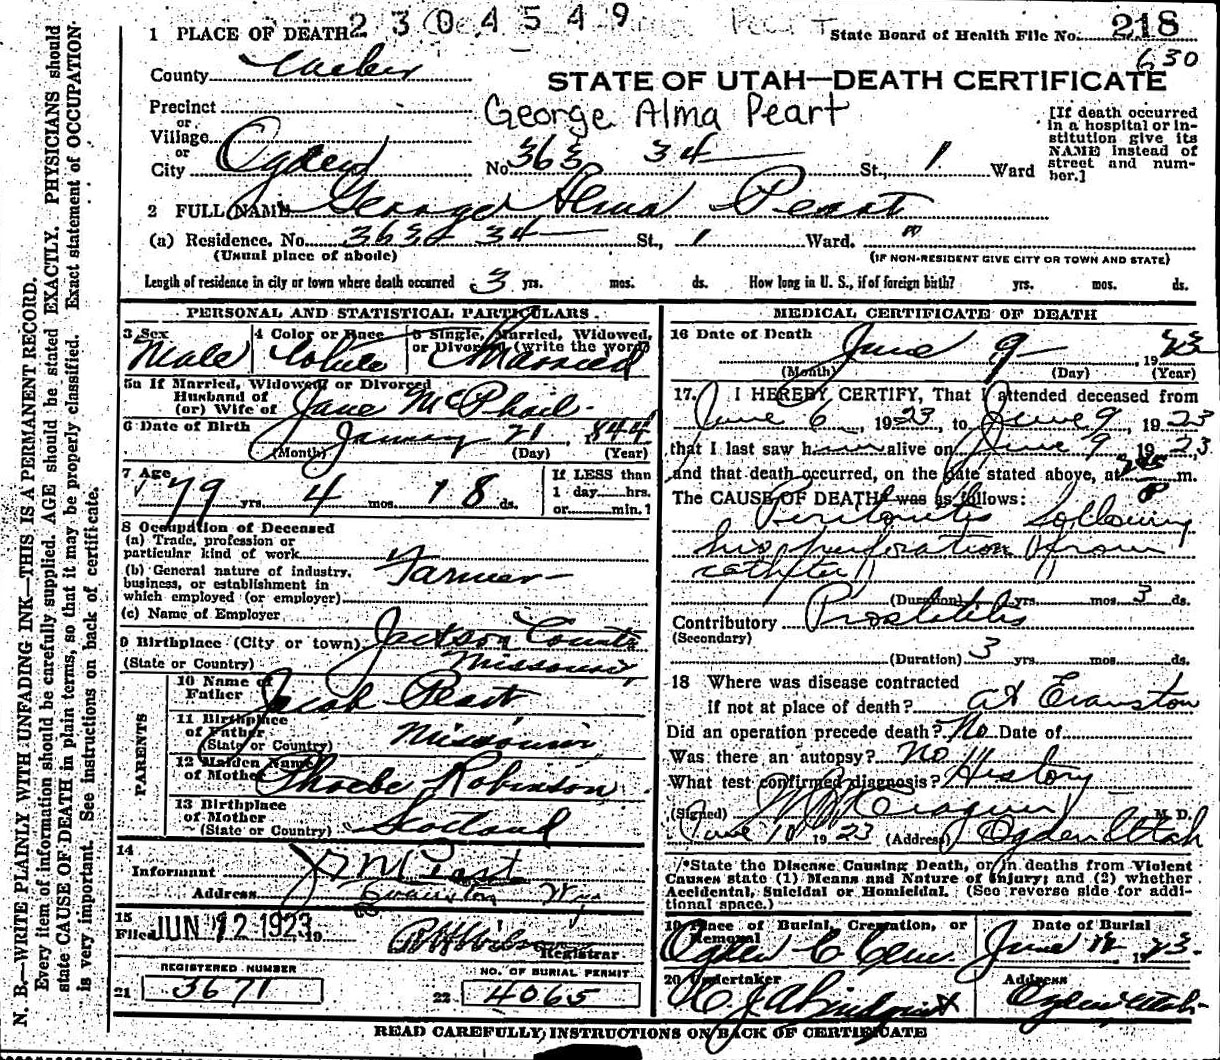 2304549
Peart
1 PLACE OF DEATH
State Board of Health File No. 218
630
County Weber
STATE OF UTAH—DEATH CERTIFICATE
Precinct
George Alma Peart
or
Village
or
City Ogden No. 363 34 St., 1 Ward
[If death occurred
in a hospital or in-
stitution give its
NAME instead of
street and num-
ber.]
2 FULL NAME George Alma Peart
(a) Residence. No. 363 34 St., 1 Ward. "
(Usual place of abode)
(IF NON-RESIDENT GIVE CITY OR TOWN AND STATE)
Length of residence in city or town where death occurred 3 yrs. mos. ds. How long in U. S., if of foreign birth? yrs. mos. ds.
PERSONAL AND STATISTICAL PARTICULARS.
3 Sex
Male
4 Color or Race
White
5 Single, Married, Widowed,
or Divorced (write the word)
Married
5a If Married, Widowed or Divorced
Husband of
(or) Wife of Jane McPhail
6 Date of Birth January 21, 1844
(Month) (Day) (Year)
7 Age
79 yrs. 4 mos. 18 ds.
If LESS than
1 day....hrs.
or....min.?
8 Occupation of Deceased
(a) Trade, profession or
particular kind of work
Farmer
(b) General nature of industry,
business, or establishment in
which employed (or employer)
(c) Name of Employer
9 Birthplace (City or town) Jackson County
(State or Country) Missouri
PARENTS
10 Name of
Father Jacob Peart
11 Birthplace
of Father
(State or Country) Missouri
12 Maiden Name
of Mother Phoebe Robinson
13 Birthplace
of Mother
(State or Country) Scotland
14
Informant J M Peart
Address Evanston Wy
15
Filed JUN 12 1923 19
Registrar
REGISTERED NUMBER
21 3671
NO. OF BURIAL PERMIT
22 4065
MEDICAL CERTIFICATE OF DEATH
16 Date of Death June 9 , 1923
(Month) (Day) (Year)
17. I HEREBY CERTIFY, That I attended deceased from
June 6, 1923, to June 9, 1923
that I last saw him alive on June 9, 1923,
and that death occurred, on the date stated above, at P m.
The CAUSE OF DEATH* was as follows:
Peritonitis following
his perforation from
catheter
(Duration) yrs. mos. 3 ds.
Contributory Prostatitis
(Secondary)
(Duration) 3 yrs. mos. ds.
18 Where was disease contracted
If not at place of death? at Evanston
Did an operation precede death? No Date of
Was there an autopsy? No
What test confirmed diagnosis? History
(Signed) M. D.
June 10 1923 (Address) Ogden Utah
*State the Disease Causing Death, or in deaths from Violent
Causes state (1) Means and Nature of Injury; and (2) whether
Accidental, Suicidal or Homicidal. (See reverse side for addi-
tional space.)
19 Place of Burial, Cremation, or
Removal
Ogden C Cem.
Date of Burial
June 12 1923.
20 Undertaker
C J A Lindquist
Address
Ogden Utah
READ CAREFULLY INSTRUCTIONS ON BACK OF CERTIFICATE
N. B.—WRITE PLAINLY WITH UNFADING INK—THIS IS A PERMANENT RECORD.
Every item of information should be carefully supplied. AGE should be stated EXACTLY. PHYSICIANS should
state CAUSE OF DEATH in plain terms, so that it may be properly classified. Exact statement of OCCUPATION
is very important. See instructions on back of certificate.